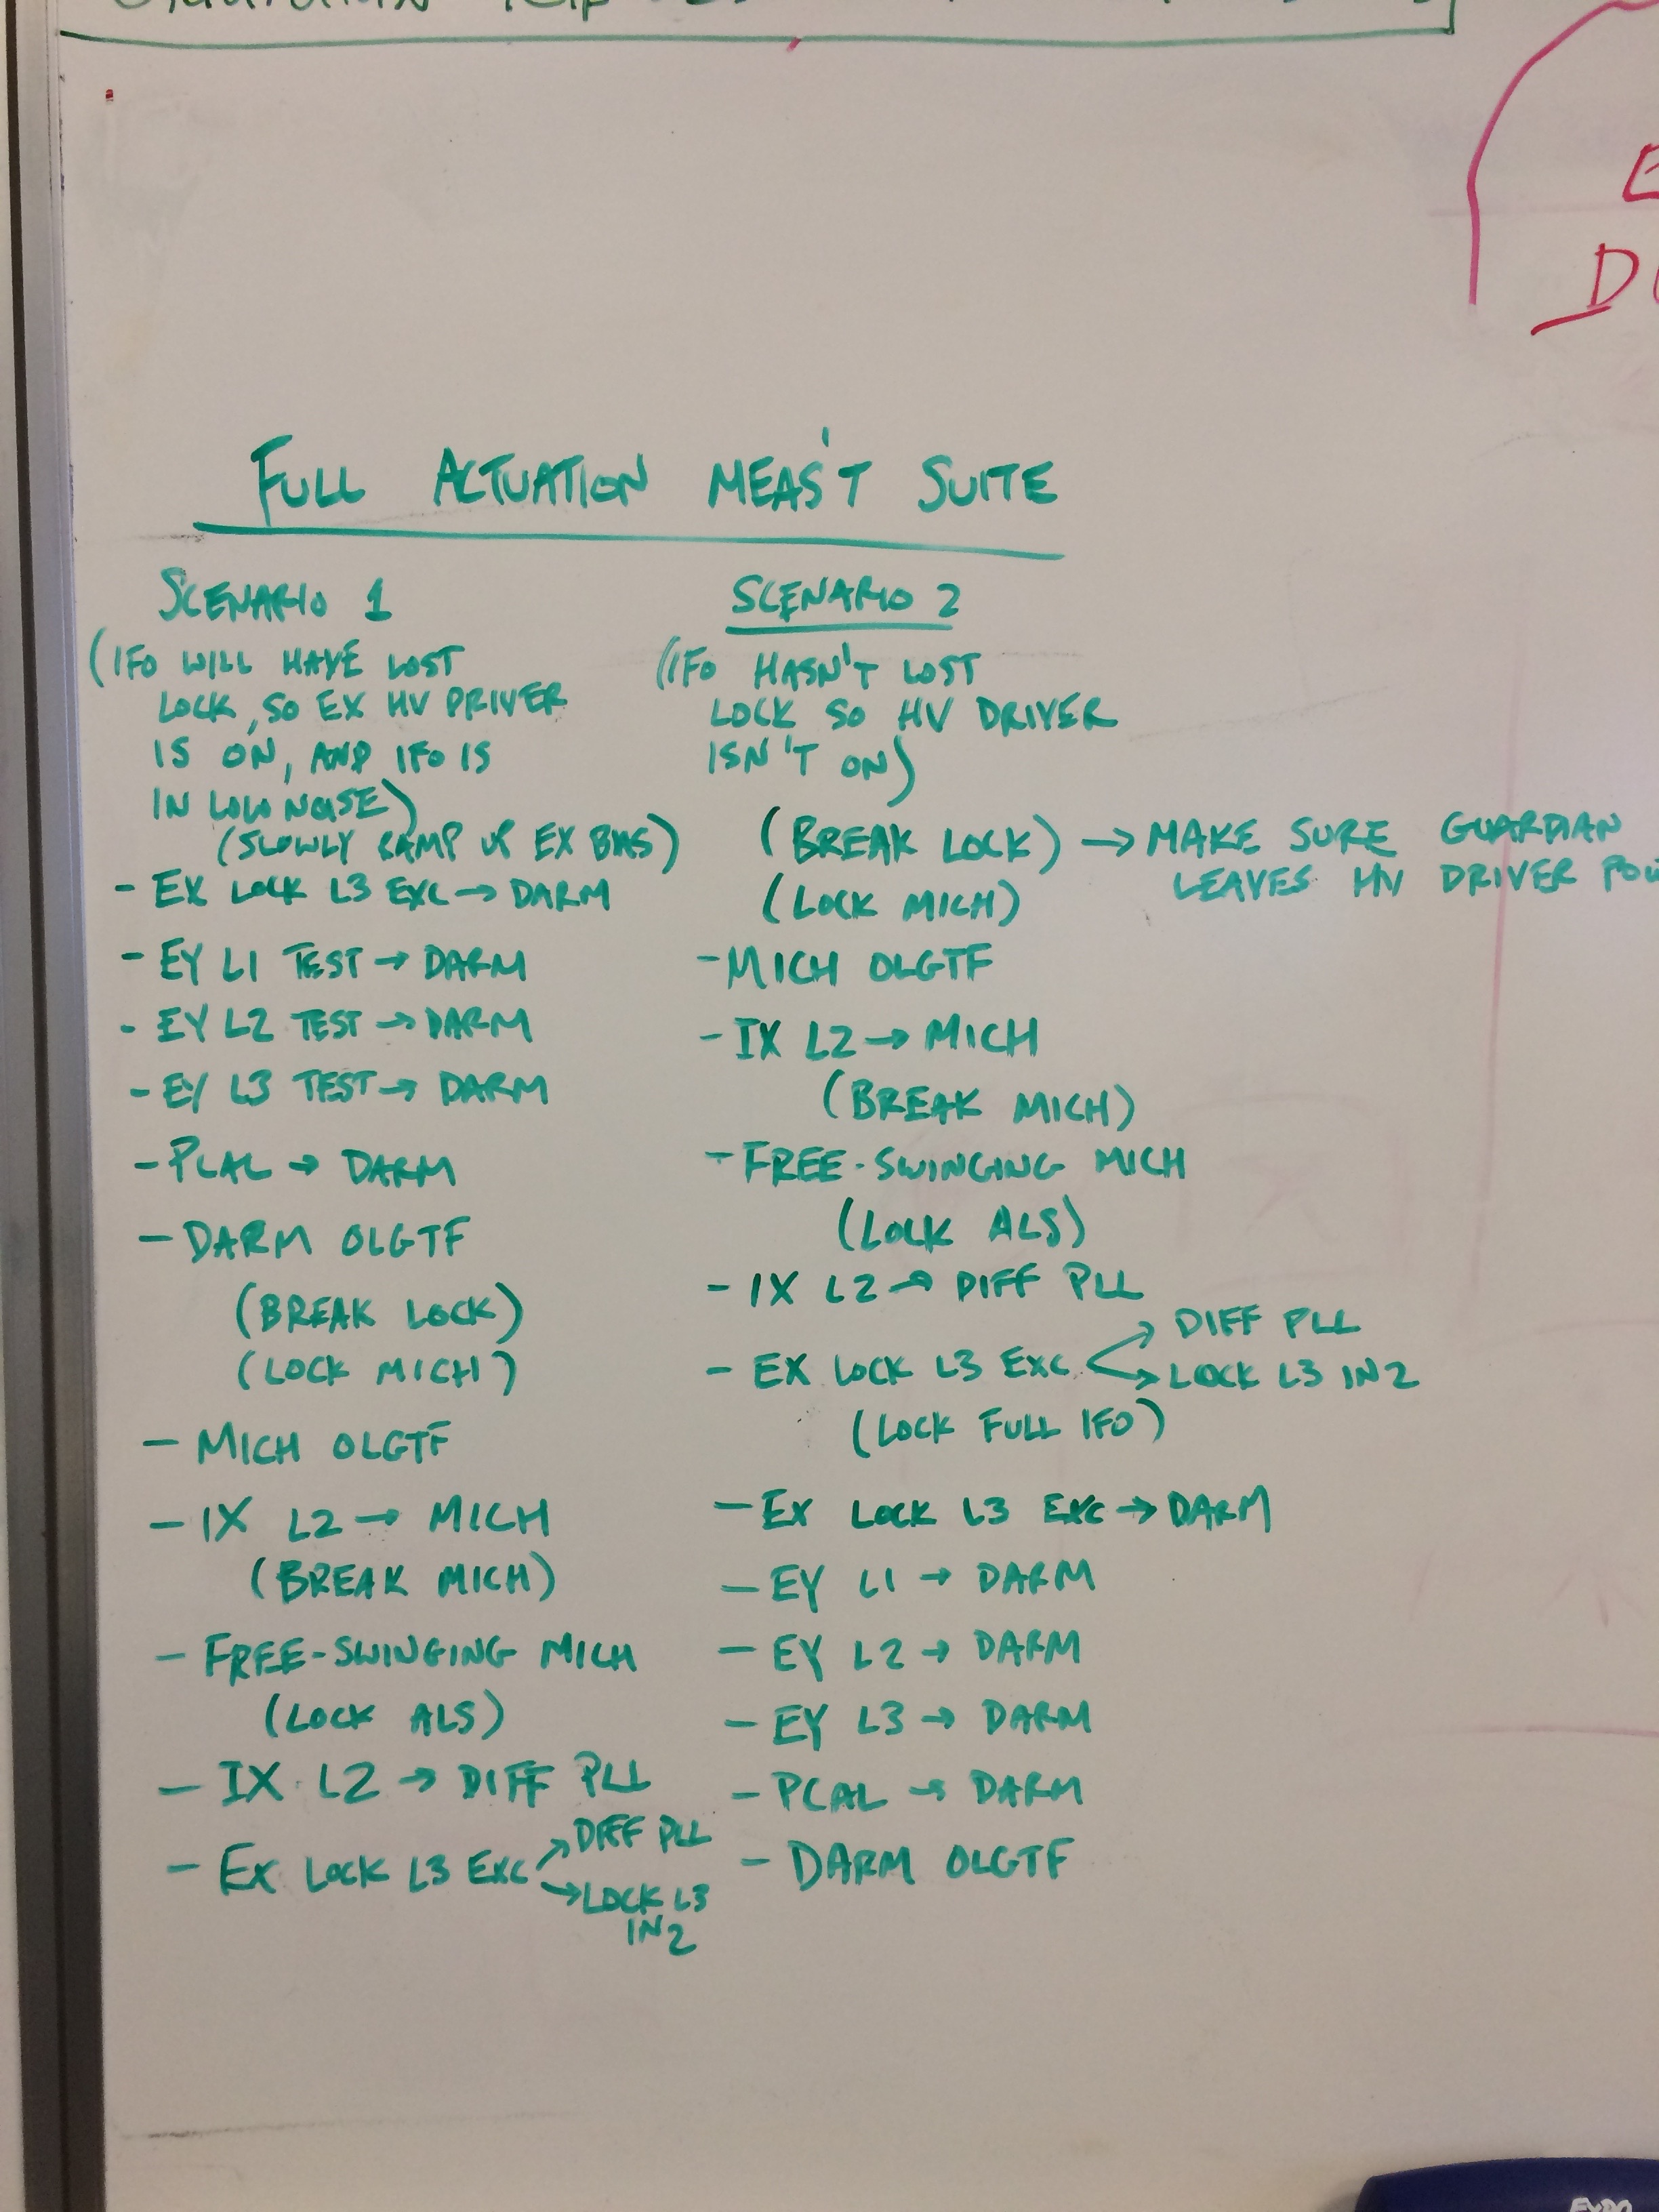 FULL ACTUATION MEAS'T SUITE
SCENARIO 1
(IFO WILL HAVE LOST
LOCK, SO EX HV DRIVER
IS ON, AND IFO IS
IN LOW NOISE)
(SLOWLY RAMP UP EX BIAS)
- EX LOCK L3 EXC → DARM
- EY L1 TEST → DARM
- EY L2 TEST → DARM
- EY L3 TEST → DARM
- PCAL → DARM
- DARM OLGTF
(BREAK LOCK)
(LOCK MICH)
- MICH OLGTF
- IX L2 → MICH
(BREAK MICH)
- FREE-SWINGING MICH
(LOCK ALS)
- IX L2 → DIFF PLL
- EX LOCK L3 EXC → DIFF PLL
→ LOCK L3
IN2
SCENARIO 2
(IFO HASN'T LOST
LOCK SO HV DRIVER
ISN'T ON)
(BREAK LOCK) → MAKE SURE GUARDIAN
LEAVES HV DRIVER
(LOCK MICH)
- MICH OLGTF
- IX L2 → MICH
(BREAK MICH)
- FREE-SWINGING MICH
(LOCK ALS)
- IX L2 → DIFF PLL
- EX LOCK L3 EXC → DIFF PLL
→ LOCK L3 IN2
(LOCK FULL IFO)
- EX LOCK L3 EXC → DARM
- EY L1 → DARM
- EY L2 → DARM
- EY L3 → DARM
- PCAL → DARM
- DARM OLGTF
EXPO